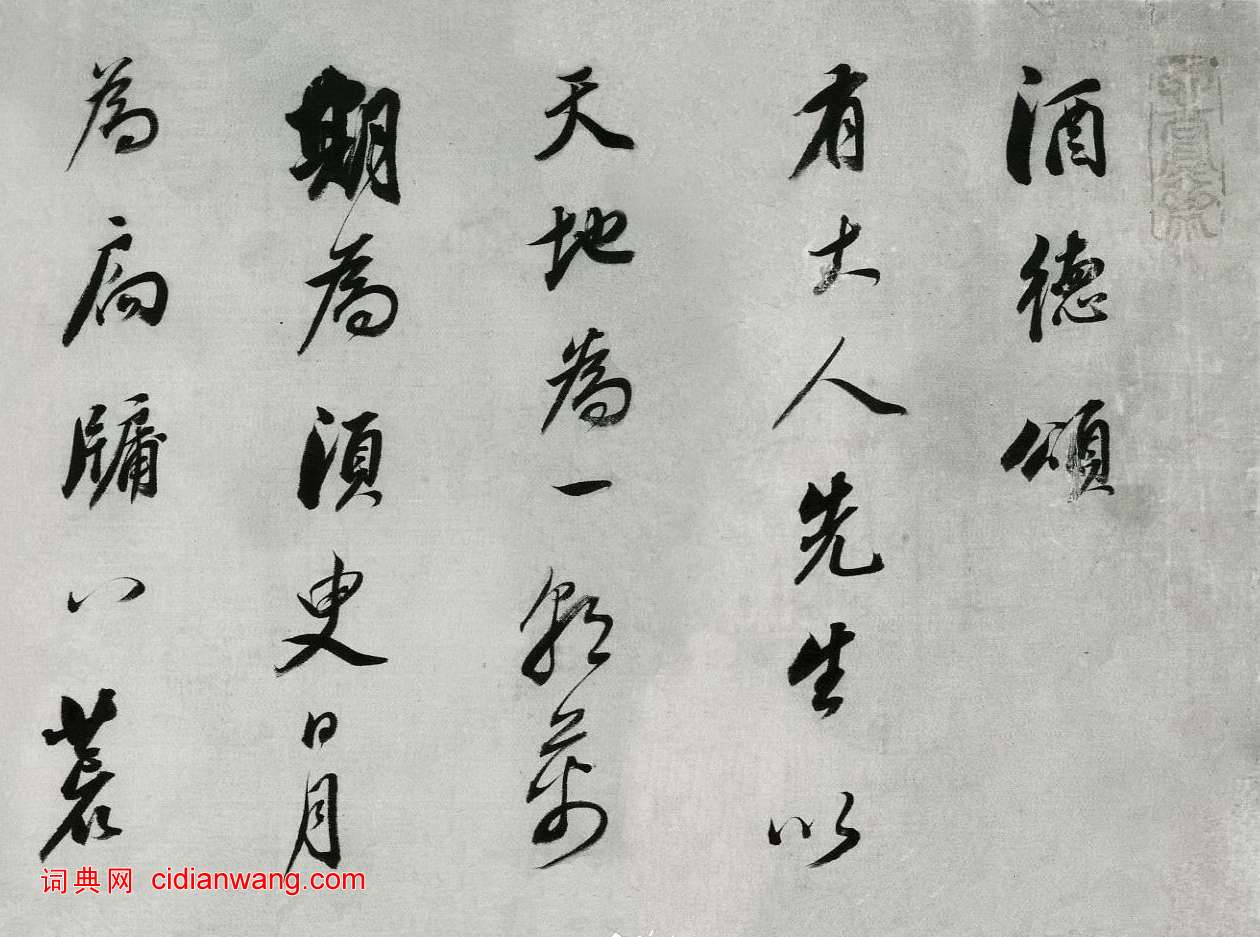 酒德頌
有大人先生以
天地為一朝萬
期為須臾日月
為扃牖八荒
词典网 cidianwang.com